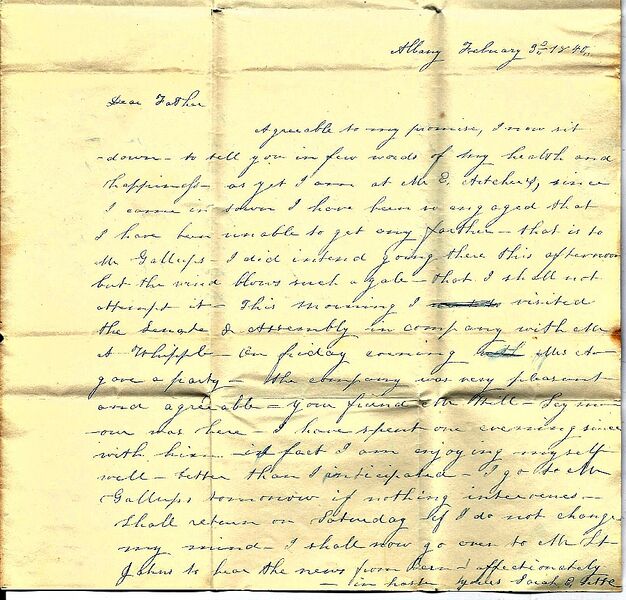 Albany February 3d 1845
Dear Father
Agreeable to my promise, I now sit
down – to tell you in few words of my health and
happiness – as yet I am at Mr E. Archer's, since
I came in town I have been so engaged that
I have been unable to get any farther – that is to
Mr Gallups – I did intend going there this afternoon
but the wind blows such a gale – that I shall not
attempt it – This morning I visited
the Senate & Assembly in company with Mr
A Whipple – On friday evening Mrs A
gave a party – the company was very pleasant
and agreeable – your friend Mr Will – Seym
our was here – I have spent one evening since
with him – in fact I am enjoying myself
well – better than I anticipated – I go to Mr
Gallups tomorrow if nothing intervenes –
Shall return on Saturday if I do not change
my mind – I shall now go over to Mr St
Johns to hear the news from – affectionately
– in haste yours Sarah E